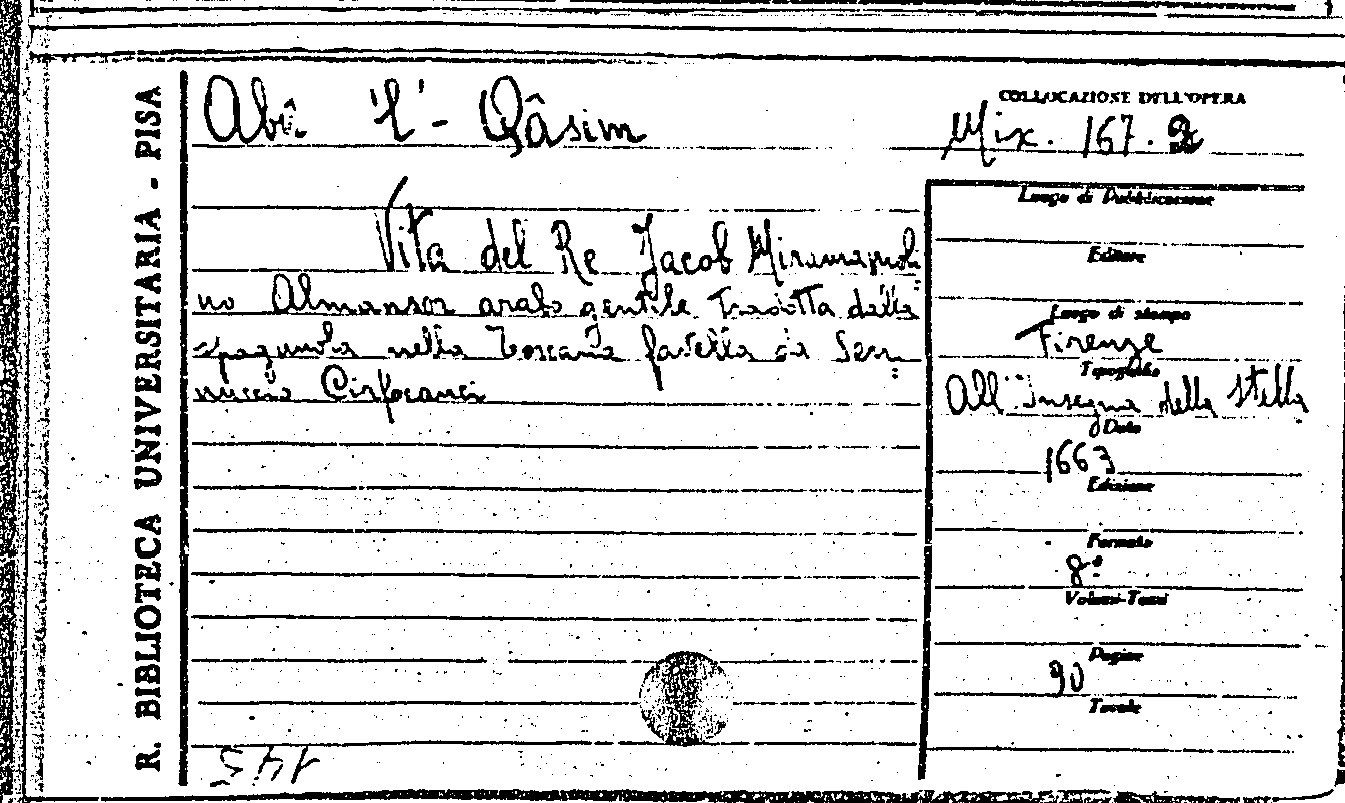 R. BIBLIOTECA UNIVERSITARIA - PISA
Abû 'l'- Qâsim
Vita del Re Jacob Miramamoli=
no Almansor arabo gentile tradotta dalla
spagnuola nella Toscana favella da Ser=
nuccio Cirfocanci
145
COLLOCAZIONE DELL'OPERA
Mix. 167. 2
Luogo di Pubblicazione
Editore
Luogo di stampa
Firenze
Tipografo
All'Insegna della Stella
Data
1663
Edizione
Formato
8º
Volumi-Tomi
Pagine
90
Tavole